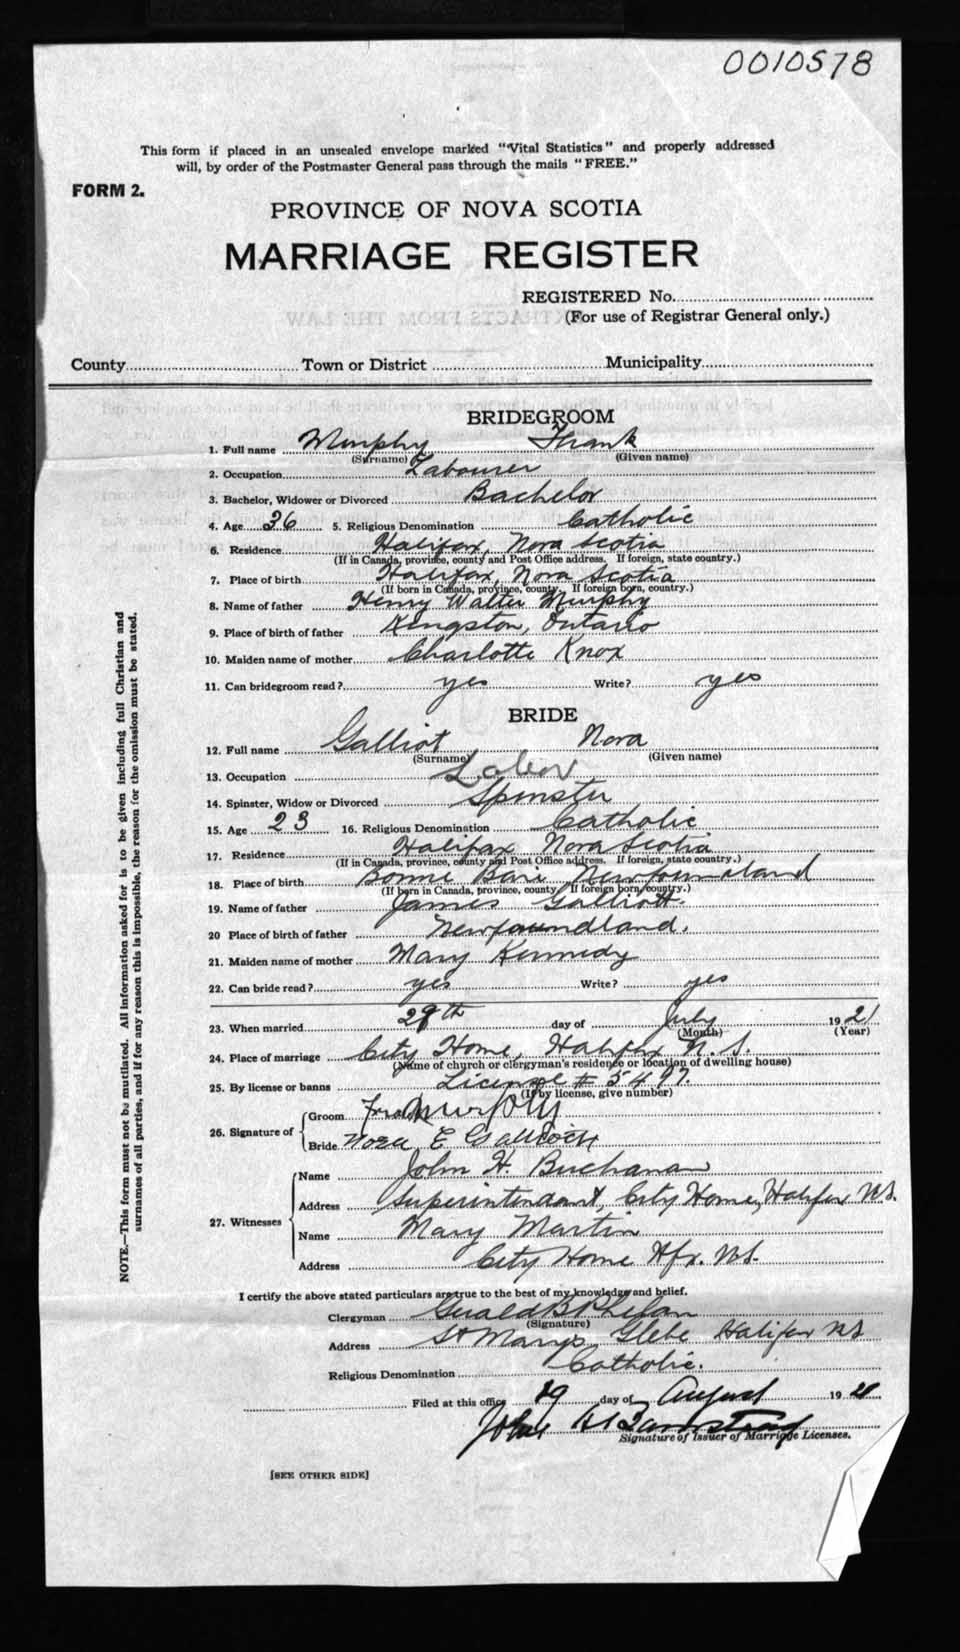 0010578
This form if placed in an unsealed envelope marked "Vital Statistics" and properly addressed
will, by order of the Postmaster General pass through the mails "FREE."
FORM 2.
PROVINCE OF NOVA SCOTIA
MARRIAGE REGISTER
REGISTERED No.
(For use of Registrar General only.)
County Town or District Municipality
BRIDEGROOM
1. Full name Murphy Frank
(Surname) (Given name)
2. Occupation Labourer
3. Bachelor, Widower or Divorced Bachelor
4. Age 36 5. Religious Denomination Catholic
6. Residence Halifax, Nova Scotia
(If in Canada, province, county and Post Office address. If foreign, state country.)
7. Place of birth Halifax, Nova Scotia
(If born in Canada, province, county. If foreign born, country.)
8. Name of father Henry Walter Murphy
9. Place of birth of father Kingston, Ontario
10. Maiden name of mother Charlotte Knox
11. Can bridegroom read? yes Write? yes
BRIDE
12. Full name Galliot Nora
(Surname) (Given name)
13. Occupation Labor
14. Spinster, Widow or Divorced Spinster
15. Age 23 16. Religious Denomination Catholic
17. Residence Halifax Nova Scotia
(If in Canada, province, county and Post Office address. If foreign, state country.)
18. Place of birth Bonne Bare Newfoundland
(If born in Canada, province, county. If foreign born, country.)
19. Name of father James Galliott.
20 Place of birth of father Newfoundland.
21. Maiden name of mother Mary Kennedy
22. Can bride read? yes Write? yes
23. When married 29th day of July 1921
(Month) (Year)
24. Place of marriage City Home, Halifax N.S.
(Name of church or clergyman's residence or location of dwelling house)
25. By license or banns License # 5497.
(If by license, give number)
26. Signature of Groom Frank Murphy
Bride Nora E
27. Witnesses Name John H. Buchanan
Address Superintendant, City Home, Halifax N.S.
Name Mary Martin
Address City Home Hfx. N.S.
I certify the above stated particulars are true to the best of my knowledge and belief.
Clergyman Gerald B Phelan
(Signature)
Address St Marys Glebe Halifax NS
Religious Denomination Catholic.
Filed at this office 19 day of August 1921
John H
Signature of Issuer of Marriage Licenses.
[SEE OTHER SIDE]
NOTE.—This form must not be mutilated. All information asked for is to be given including full Christian and
surnames of all parties, and if for any reason this is impossible, the reason for the omission must be stated.